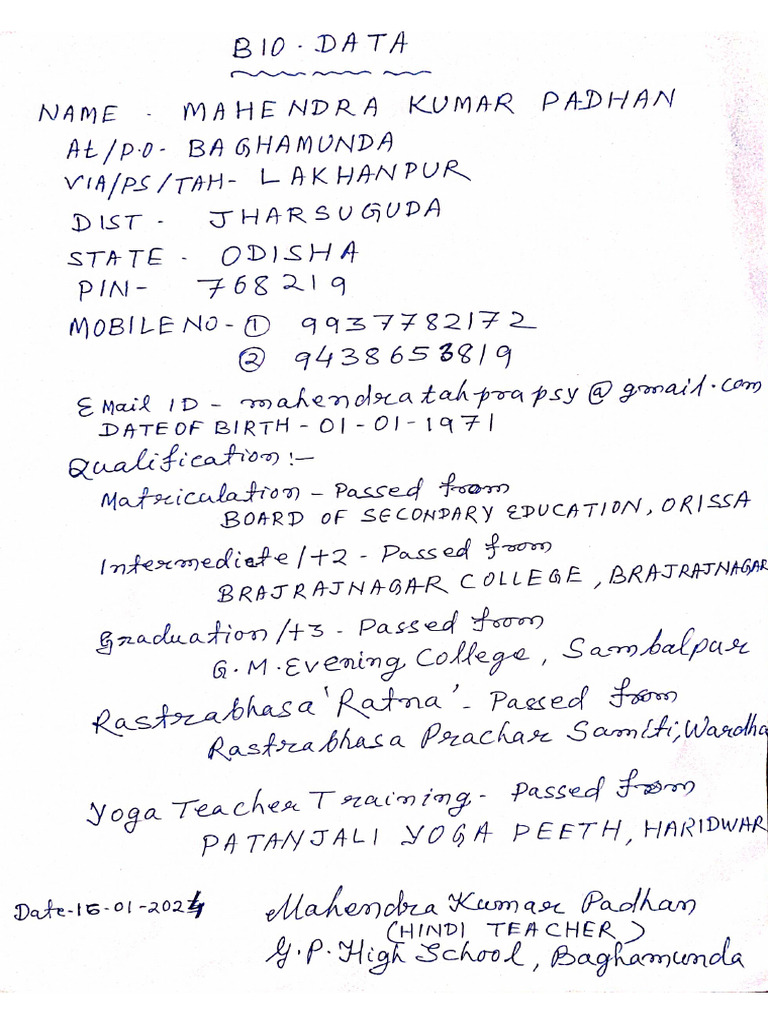 BIO-DATA
NAME - MAHENDRA KUMAR PADHAN
At/P.O- BAGHAMUNDA
VIA/PS/TAH- LAKHANPUR
DIST - JHARSUGUDA
STATE - ODISHA
PIN- 768219
MOBILE NO - ① 9937782172
② 9438653819
E Mail ID - mahendratahprapsy@gmail.com
DATE OF BIRTH - 01-01-1971
Qualification:-
Matriculation - Passed from
BOARD OF SECONDARY EDUCATION, ORISSA
Intermediate/+2 - Passed from
BRAJRAJNAGAR COLLEGE, BRAJRAJNAGAR
Graduation/+3 - Passed from
G.M. Evening College, Sambalpur
Rastrabhasa 'Ratna' - Passed from
Rastrabhasa Prachar Samiti, Wardha
Yoga Teacher Training - Passed from
PATANJALI YOGA PEETH, HARIDWAR
Mahendra Kumar Padhan
Date-16-01-2024
(HINDI TEACHER)
G.P. High School, Baghamunda